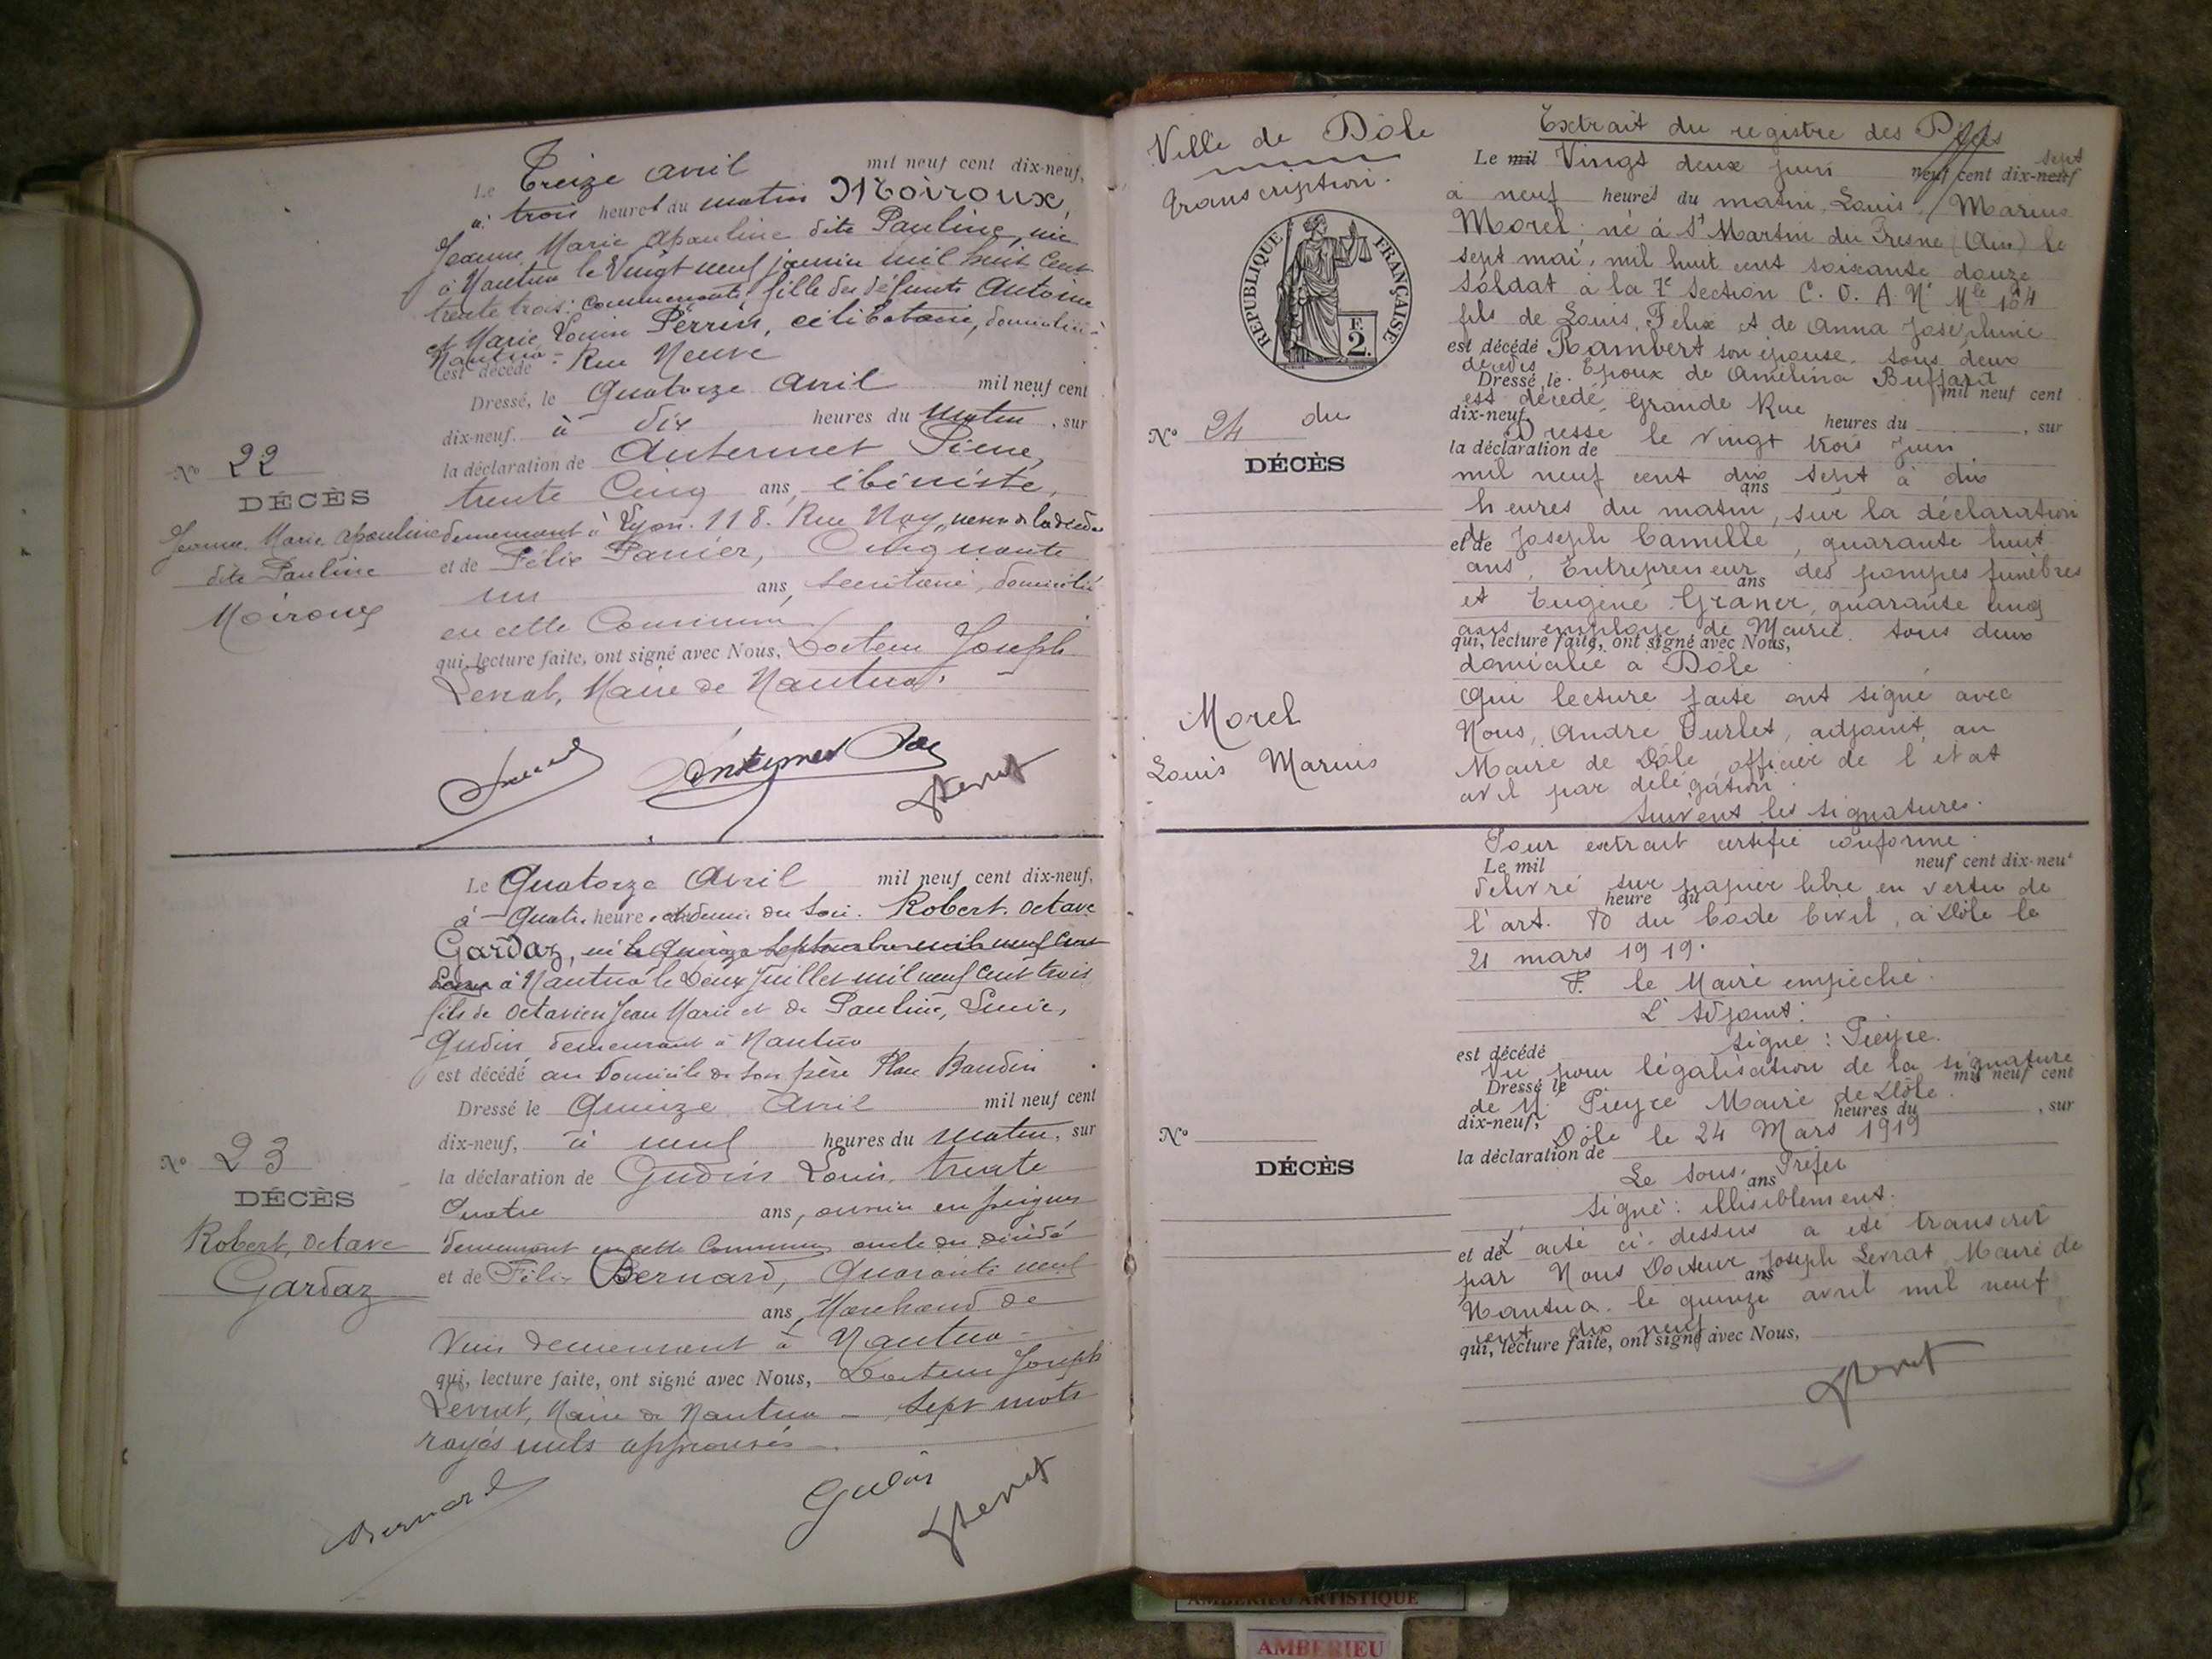 Le Treize avril mil neuf cent dix-neuf,
à trois heures du matin Moiroux,
Jeanne Marie Apauline dite Pauline, née
à Nantua le Vingt neuf janvier mil huit cent
trente trois: fille des défunts Antoine
et Marie Louise Perrin, célibataire, domiciliée à
Nantua - Rue Neuve
est décédé
Dressé, le Quatorze Avril mil neuf cent
dix-neuf. à dix heures du Matin, sur
la déclaration de Antermet Pierre,
trente Cinq ans, ébéniste,
N° 22
DÉCÈS
Jeanne Marie Apauline
dite Pauline
Moiroux
demeurant à Lyon. 118. Rue
et de Félix Panier, Cinquante
un ans, secrétaire, domicilié
en cette Commune
qui, lecture faite, ont signé avec Nous, Docteur Joseph
Levrat, Maire de Nantua.
Le Quatorze Avril mil neuf cent dix-neuf,
à Quatre heure et demie du soir. Robert. Octave
Gardaz, né le quinze septembre mil neuf cent
à Nantua le Deux Juillet mil neuf cent trois
fils de Octavien Jean Marie et de Pauline,
Gudin demeurant à Nantua
est décédé au Domicile de son père Place Baudin
Dressé le Quinze Avril mil neuf cent
dix-neuf, à neuf heures du Matin, sur
la déclaration de Gudin Louis, trente
Quatre ans, ouvrier en peignes
N° 23
DÉCÈS
Robert, Octave
Gardaz
demeurant en cette Commune oncle du décédé
et de Félix Bernard, Quarante neuf
ans, Marchand de
Vin demeurant à Nantua
qui, lecture faite, ont signé avec Nous, Docteur Joseph
Levrat, Maire de Nantua - Sept mots
rayés nuls approuvés -
Bernard
Gudin
Levrat
Ville de Dôle
Transcription.
RÉPUBLIQUE FRANÇAISE
F.
2.
N° 24 du
DÉCÈS
Morel
Louis Marius
Extrait du registre des Décès
Le mil Vingt deux juin neuf cent dix-neuf sept
à neuf heures du matin, Louis, Marius
Morel, né à St Martin du Fresne (Ain) le
sept mai, mil huit cent soixante douze
Soldat à la 7e Section C. O. A. N° Mle
fils de Louis, Felix et de Anna Joséphine
est décédé Rambert son épouse. tous deux
décédés Epoux de Amélina Buffard
Dressé, le mil neuf cent
est décédé, Grande Rue
dix-neuf, heures du , sur
Dressé le vingt trois Juin
la déclaration de
mil neuf cent dix sept à dix
ans
heures du matin, sur la déclaration
et de Joseph Camille, quarante huit
ans, Entrepreneur des pompes funèbres
ans
et Eugène Graner, quarante cinq
ans employé de Mairie. tous deux
qui, lecture faite, ont signé avec Nous,
domicilié à Dôle
Qui lecture faite ont signé avec
Nous, André Durlet, adjoint, au
Maire de Dôle officier de l'état
civil par délégation.
Suivent les signatures.
Pour extrait certifié conforme.
Le mil neuf cent dix-neuf
délivré sur papier libre en vertu de
heure du
l'art. 80 du Code Civil, à Dôle le
21 mars 1919.
P. le Maire empêché.
L'Adjoint:
signé: Pieyre.
est décédé
Vu pour légalisation de la signature
Dressé le mil neuf cent
de M. Pieyre Maire de Dôle.
dix-neuf, heures du , sur
Dôle le 24 Mars 1919
la déclaration de
N°
DÉCÈS
Le Sous-Préfet
ans
Signé: illisiblement.
et de L'acte ci-dessus a été transcrit
par Nous Docteur Joseph Levrat Maire de
ans
Nantua. le quinze avril mil neuf
cent dix neuf
qui, lecture faite, ont signé avec Nous,
Levrat
AMBERIEU ARTISTIQUE
AMBERIEU